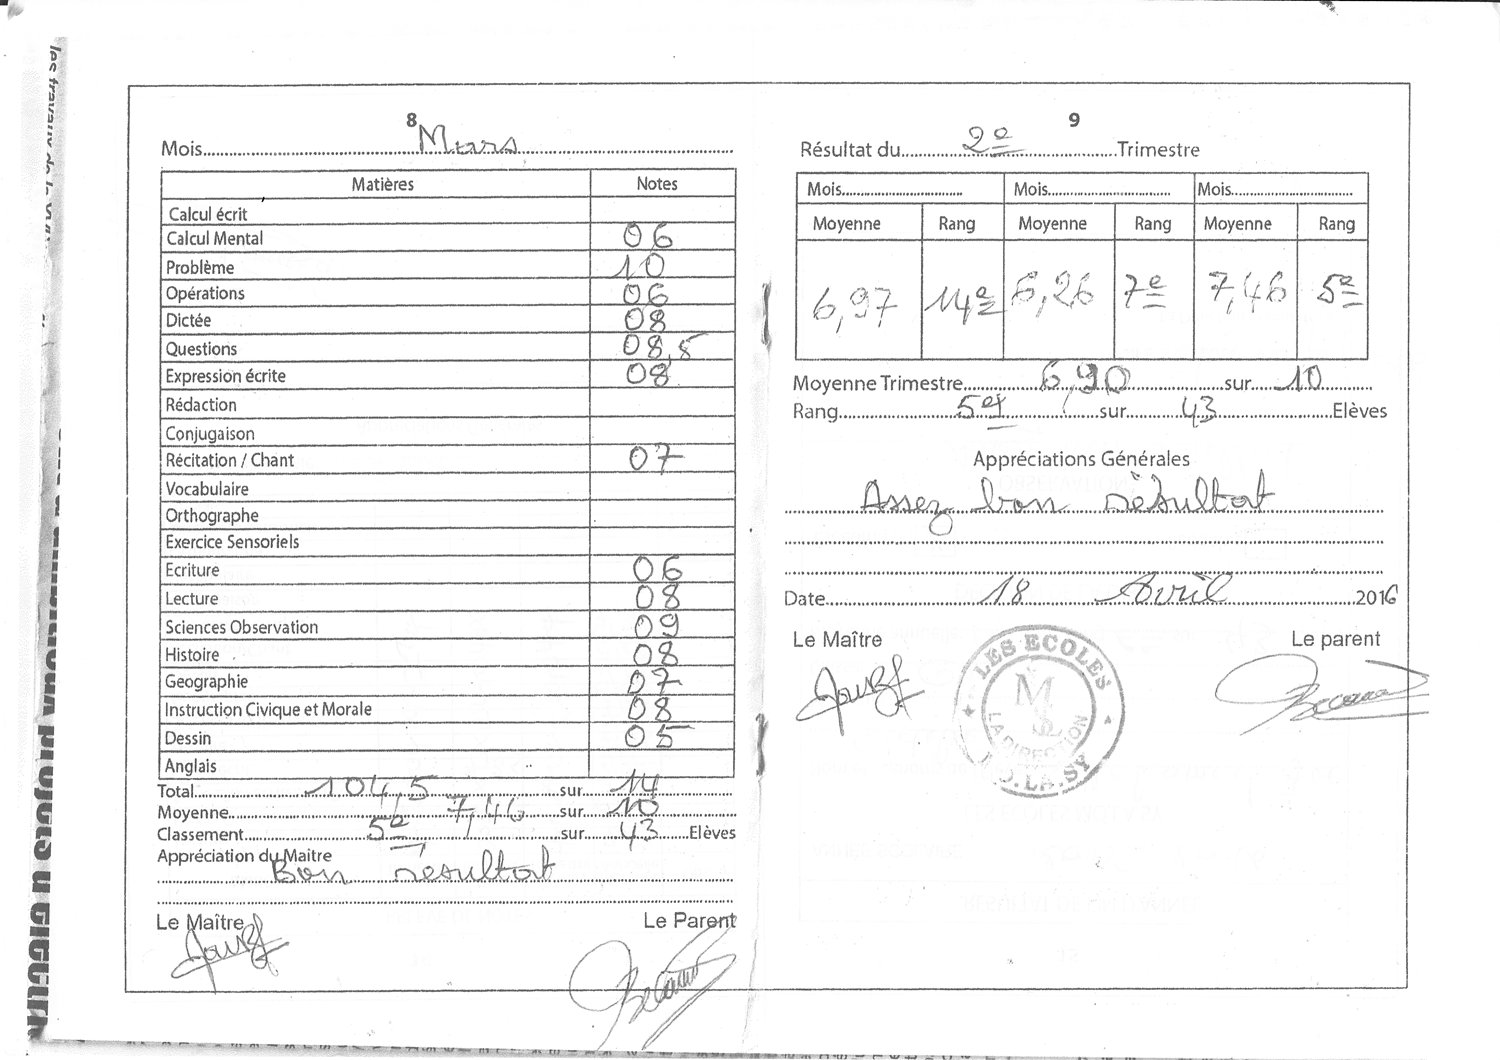 8
Mois Mars
Matières Notes
Calcul écrit
Calcul Mental 06
Problème 10
Opérations 06
Dictée 08
Questions 08,5
Expression écrite 08
Rédaction
Conjugaison
Récitation / Chant 07
Vocabulaire
Orthographe
Exercice Sensoriels
Ecriture 06
Lecture 08
Sciences Observation 09
Histoire 08
Geographie 07
Instruction Civique et Morale 08
Dessin 05
Anglais
Total 104,5 sur 14
Moyenne 7,46 sur 10
Classement 5e sur 43 Elèves
Appréciation du Maitre
Bon résultat
Le Maître Le Parent
9
Résultat du 2e Trimestre
Mois Mois Mois
Moyenne Rang Moyenne Rang Moyenne Rang
6,97 14e 6,26 7e 7,46 5e
Moyenne Trimestre 6,90 sur 10
Rang 5e sur 43 Elèves
Appréciations Générales
Assez bon résultat
Date 18 Avril 2016
Le Maître Le parent
LES ECOLES
LA DIRECTION
LA.SY